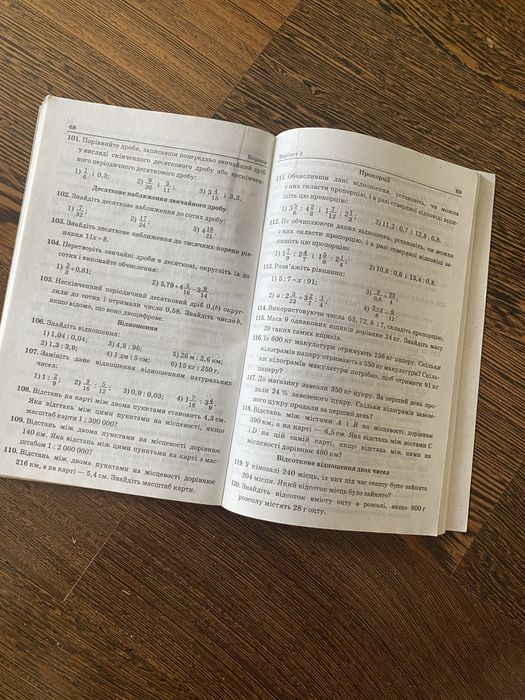 68
Варіан
101. Порівняйте дроби, записавши попередньо звичайний дріб
у вигляді скінченного десяткового дробу або нескінчен-
ного періодичного десяткового дробу:
1) 1/6 і 0,3; 2) 9/20 і 5/11; 3) 3 4/15 і 3,3.
Десяткове наближення звичайного дробу
102. Знайдіть десяткове наближення до сотих дробу:
1) 7/32; 2) 17/24; 3) 4 16/21.
103. Знайдіть десяткове наближення до тисячних кореня рів-
няння 11x = 8.
104. Перетворіть звичайні дроби в десяткові, округліть їх до
сотих і виконайте обчислення:
1) 2/3 + 0,81; 2) 5,79 + 4 5/16 − 3 9/14.
105. Нескінченний періодичний десятковий дріб 0,(b) округ-
лили до сотих і отримали число 0,58. Знайдіть число b,
якщо відомо, що воно двоцифрове.
Відношення
106. Знайдіть відношення:
1) 1,04 : 0,04; 3) 4,8 : 96; 5) 26 м : 2,6 км;
2) 1,3 : 3,9; 4) 1 дм : 5 см; 6) 15 кг : 250 г.
107. Замініть дане відношення відношенням натуральних
чисел:
1) 1 : 2/9; 2) 3/16 : 5/12; 3) 0,9 : 0,03; 4) 1 7/18 : 3 4/9.
108. Відстань на карті між двома пунктами становить 4,3 см.
Яка відстань між цими пунктами на місцевості, якщо
масштаб карти 1 : 300 000?
109. Відстань між двома пунктами на місцевості дорівнює
140 км. Яка відстань між цими пунктами на карті з мас-
штабом 1 : 2 000 000?
110. Відстань між двома пунктами на місцевості дорівнює
216 км, а на карті — 5,4 см. Знайдіть масштаб карти.
Варіант 3
69
Пропорції
111. Обчисливши дані відношення, установіть, чи можна
з них скласти пропорцію, і в разі ствердної відповіді запи-
шіть цю пропорцію:
2) 11,2 : 0,7 і 12,8 : 0,8.
112. Не обчислюючи даних відношень, установіть, чи можна
з них скласти пропорцію, і в разі ствердної відповіді за-
пишіть цю пропорцію:
2) 10,8 : 0,6 і 13,4 : 0,8.
113. Розв'яжіть рівняння:
1) 5 : 7 = x : 91;
114. Використовуючи числа 63, 72, 8 і 7, складіть пропорцію.
115. Маса 9 однакових ящиків дорівнює 24 кг. Знайдіть масу
39 таких ящиків.
116. Із 600 кг макулатури отримують 156 кг паперу. Скільки
кілограмів паперу отримають з 550 кг макулатури? Скіль-
ки кілограмів макулатури потрібно, щоб отримати 91 кг
паперу?
117. До магазину завезли 350 кг цукру. За перший день про-
дали 24 % завезеного цукру. Скільки кілограмів завезе-
ного цукру продали за перший день?
118. Відстань між містами A і B на місцевості дорівнює
390 км, а на карті — 6,5 см. Яка відстань між містами C
і D на цій самій карті, якщо відстань між ними на
місцевості дорівнює 480 км?
Відсоткове відношення двох чисел
119. У кінозалі 240 місць, із них під час сеансу було зайнято
204 місця. Який відсоток місць було зайнято?
120. Знайдіть відсоток вмісту оцту в розсолі, якщо 800 г
розсолу містять 28 г оцту.